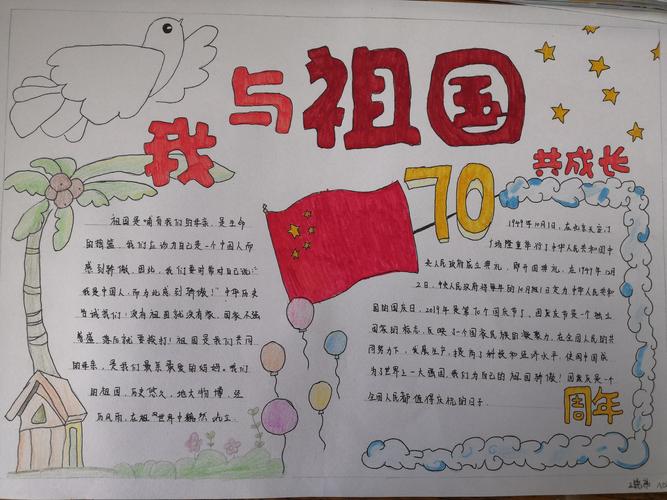 我与祖国
共成长
70
祖国是哺育我们的母亲,是生命
的摇篮,我们应该为自己是一个中国人而
感到骄傲。因此,我们要时常对自己说:“
我是中国人,而为此感到骄傲!”中华历史
告诫我们:没有祖国就没有家,国家不强
盛,落后就要挨打!祖国是我们共同
的母亲,是我们最亲最爱的妈妈。我们
的祖国,历史悠久,地大物博,经
历风雨,在祖 世界中巍然屹立。
1949年10月1日,在北京天安门
广场隆重举行了中华人民共和国中
央人民政府成立典礼,即开国典礼。在1949年12月
2日,中央人民政府将每年的10月1日定为中华人民共和
国的国庆日。2019年是第70个国庆节了。国庆节是一个独立
国家的标志,反映了一个国家民族的凝聚力。在全国人民的共
同努力下,发展生产,提高了科技和经济水平,使中国成
为了世界上一大强国,我们为自己的祖国骄傲!国庆节是一个
全国人民都值得庆祝的日子。
周年